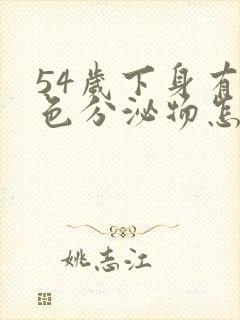 54歲下身有
色分泌物怎
姚志江